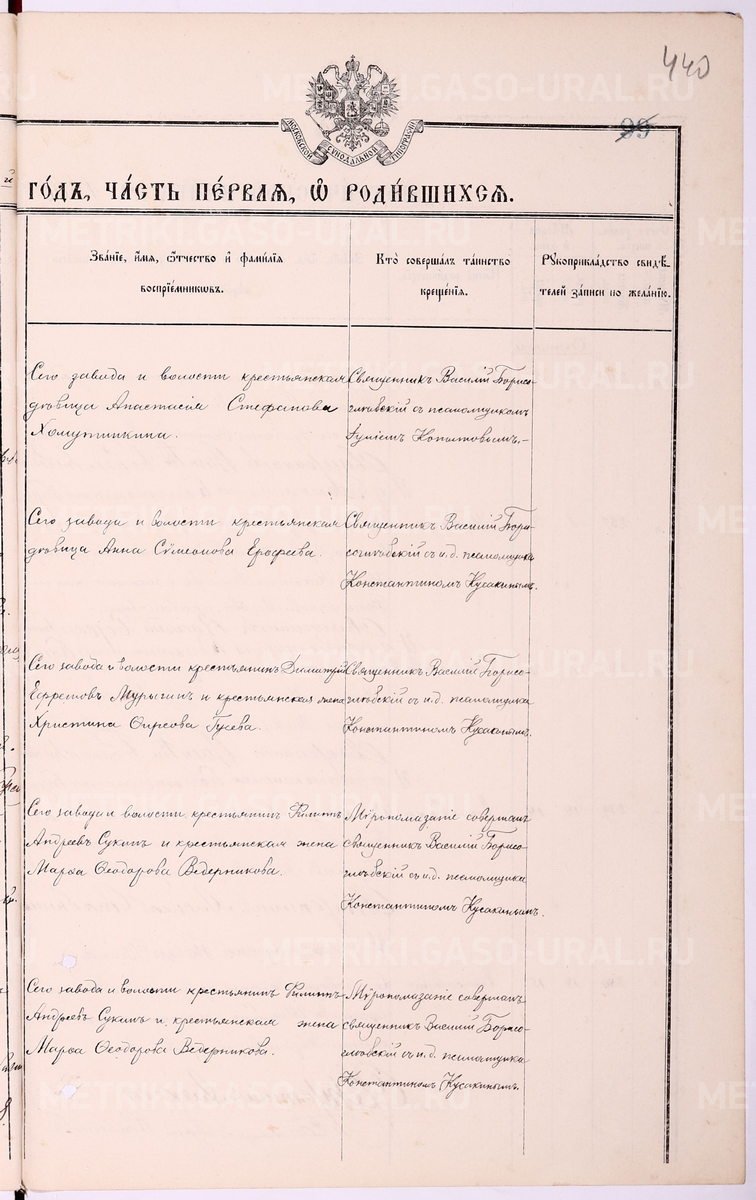 440
95
МОСКОВСКОЙ СѴНОДАЛЬНОЙ ТИПОГРАФІИ
ГОДЪ, ЧАСТЬ ПЕРВАЯ, Ѽ РОДИВШИХСЯ.
Званіе, имя, ѻтчество и фамилія
воспріемниковъ.
Кто совершалъ таинство
крещенія.
Рукоприкладство свидѣ-
телей записи по желанію.
Сего завода и волости крестьянская
дѣвица Анастасія Стефанова
Хомутинкина.
Священникъ Василій Борисо-
глѣбскій съ псаломщикомъ
Копытовымъ.
Сего завода и волости крестьянская
дѣвица Анна Сѵмеонова Ерофеева.
Священникъ Василій Бори-
соглѣбскій съ и.д. псаломщика
Константиномъ Кусакинымъ.
Сего завода и волости крестьянинъ Димитрій
Ефремовъ Мурыгинъ и крестьянская жена
Христина Гусева.
Священникъ Василій Борисо-
глѣбскій съ и.д. псаломщика
Константиномъ Кусакинымъ.
Сего завода и волости крестьянинъ Филиппъ
Андреевъ Сукинъ и крестьянская жена
Марѳа Ѳеодорова Ведерникова.
Мѵропомазаніе совершалъ
священникъ Василій Борисо-
глѣбскій съ и.д. псаломщика
Константиномъ Кусакинымъ.
Сего завода и волости крестьянинъ Филиппъ
Андреевъ Сукинъ и крестьянская жена
Марѳа Ѳеодорова Ведерникова.
Мѵропомазаніе совершалъ
священникъ Василій Борисо-
глѣбскій съ и.д. псаломщика
Константиномъ Кусакинымъ.
METRIKI.GASO-URAL.RU